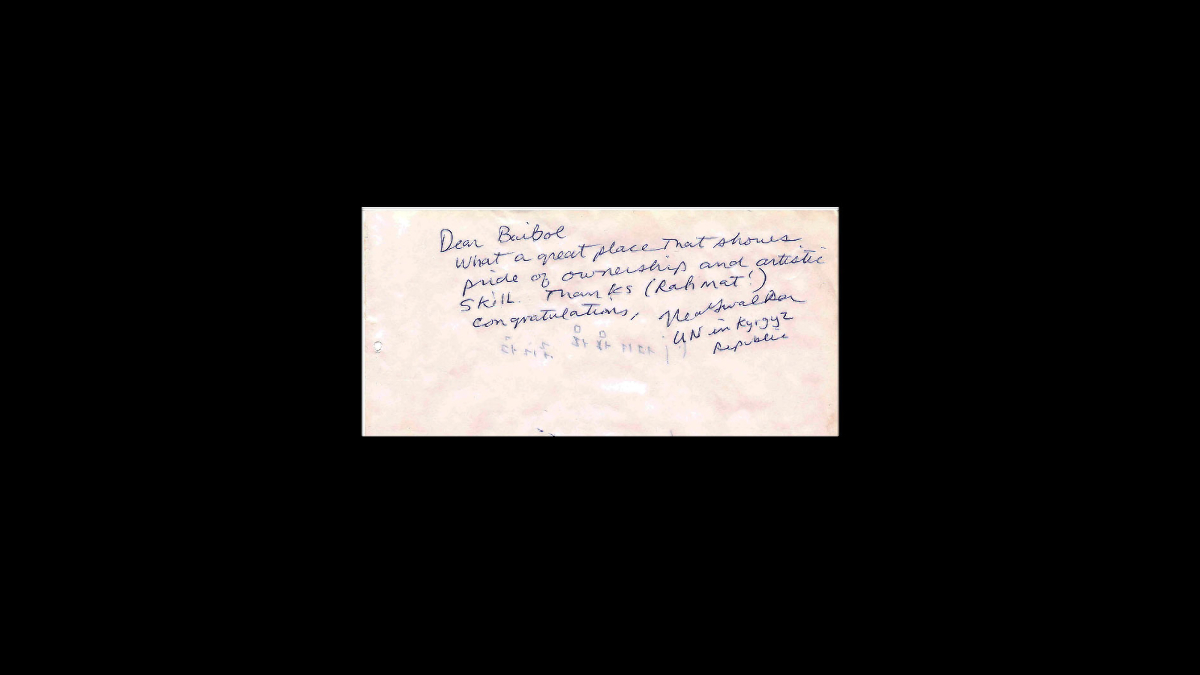 Dear Baibol
What a great place that shows
pride of ownership and artistic
skill. Thanks (Rahmat!)
congratulations, Neal Walker
UN in Kyrgyz
Republic